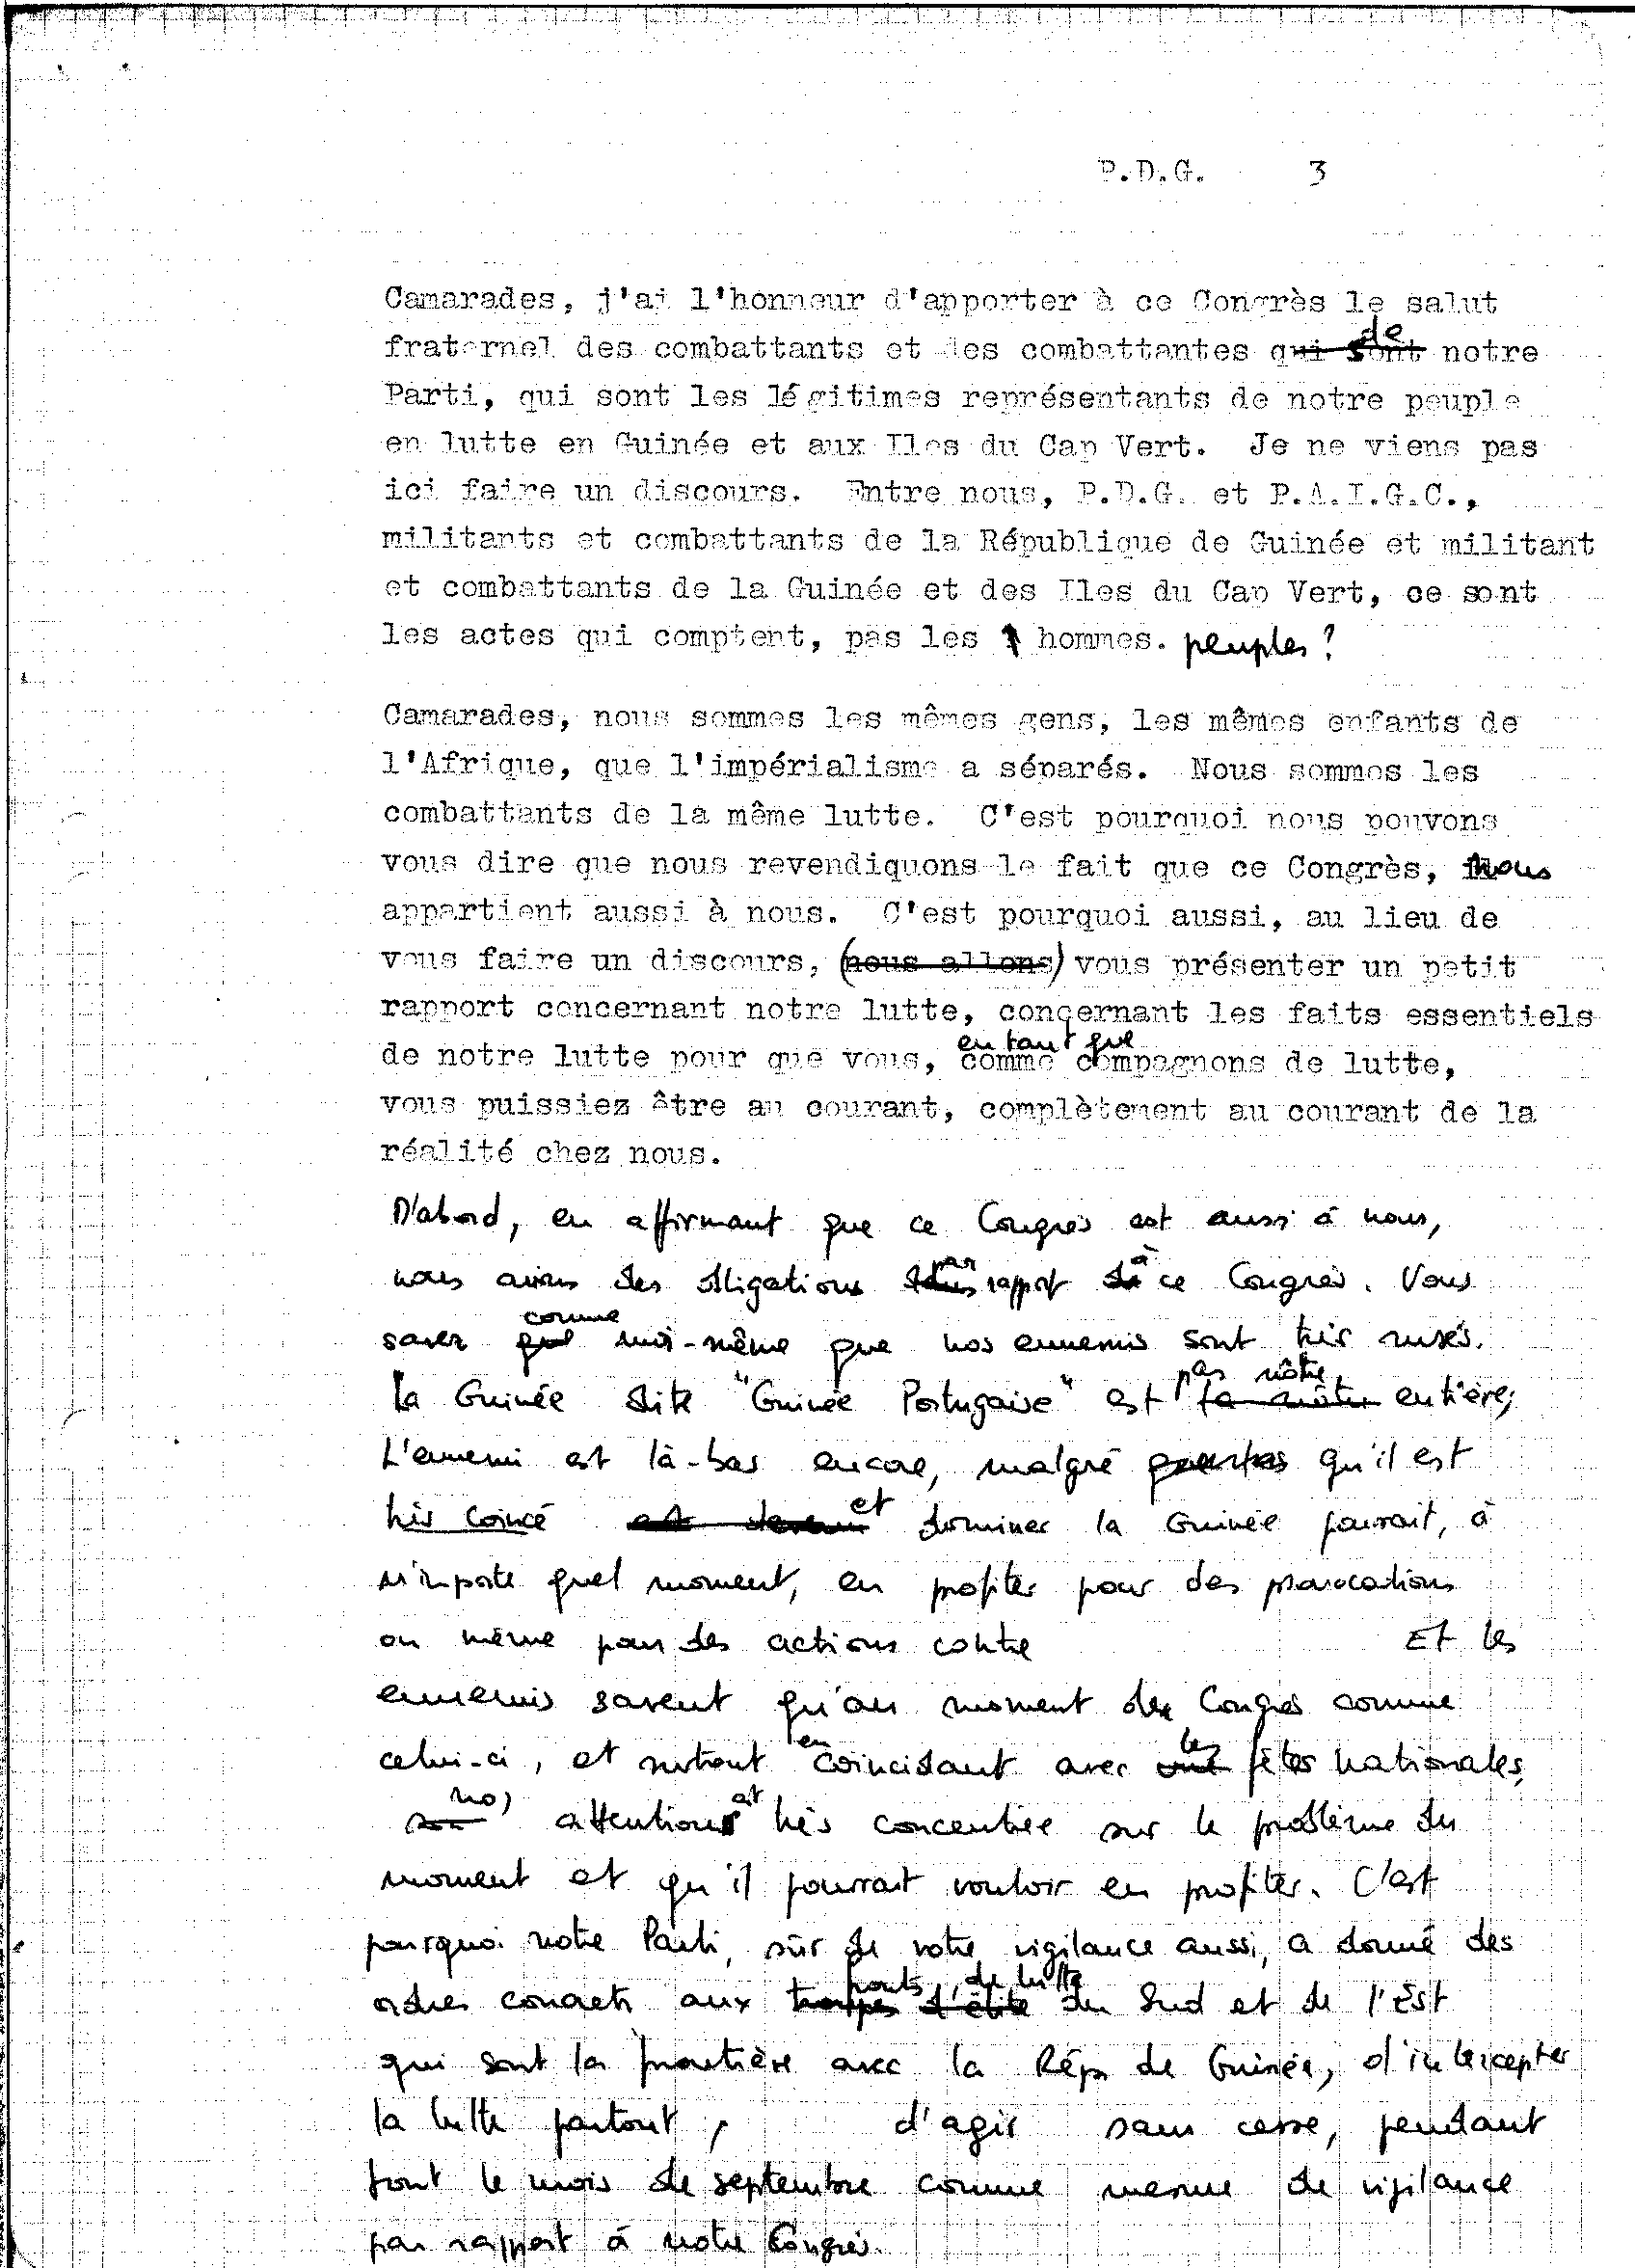 P.D.G. 3
Camarades, j'ai l'honneur d'apporter à ce Congrès le salut
fraternel des combattants et des combattantes qui sont de notre
Parti, qui sont les légitimes représentants de notre peuple
en lutte en Guinée et aux Iles du Cap Vert. Je ne viens pas
ici faire un discours. Entre nous, P.D.G. et P.A.I.G.C.,
militants et combattants de la République de Guinée et militant
et combattants de la Guinée et des Iles du Cap Vert, ce sont
les actes qui comptent, pas les hommes. peuples?
Camarades, nous sommes les mêmes gens, les mêmes enfants de
l'Afrique, que l'impérialisme a séparés. Nous sommes les
combattants de la même lutte. C'est pourquoi nous pouvons
vous dire que nous revendiquons le fait que ce Congrès, nous
appartient aussi à nous. C'est pourquoi aussi, au lieu de
vous faire un discours, (nous allons) vous présenter un petit
rapport concernant notre lutte, concernant les faits essentiels
en tant que
de notre lutte pour que vous, comme compagnons de lutte,
vous puissiez être au courant, complètement au courant de la
réalité chez nous.
D'abord, en affirmant que ce Congrès est aussi à nous,
nous avons des obligations par rapport à ce Congrès. Vous
comme
savez que moi-même que nos ennemis sont très rusés.
pas nôtre
La Guinée dite "Guinée Portugaise" est entière,
L'ennemi est là-bas encore, malgré qu'il est
très coincé et dominer la Guinée pourrait, à
n'importe quel moment, en profiter pour des provocations
ou même pour des actions contre Et les
ennemis savent qu'au moment de Congrès comme
celui-ci, et surtout en coincidant avec les fêtes nationales,
nos attention est très concentrée sur le problème du
moment et qu'il pourrait vouloir en profiter. C'est
pourquoi notre Parti, sûr de votre vigilance aussi, a donné des
fronts de lutte
ordres concrets aux troupes d'élite du Sud et de l'Est
qui sont la frontière avec la Rép de Guinée, d'intercepter
la lutte partout, d'agir sans cesse, pendant
tout le mois de septembre comme mesure de vigilance
par rapport à notre Congrès.